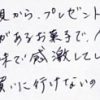 親から、プレゼント
があるお菓まで、
味で感激してし
買いに行けないの